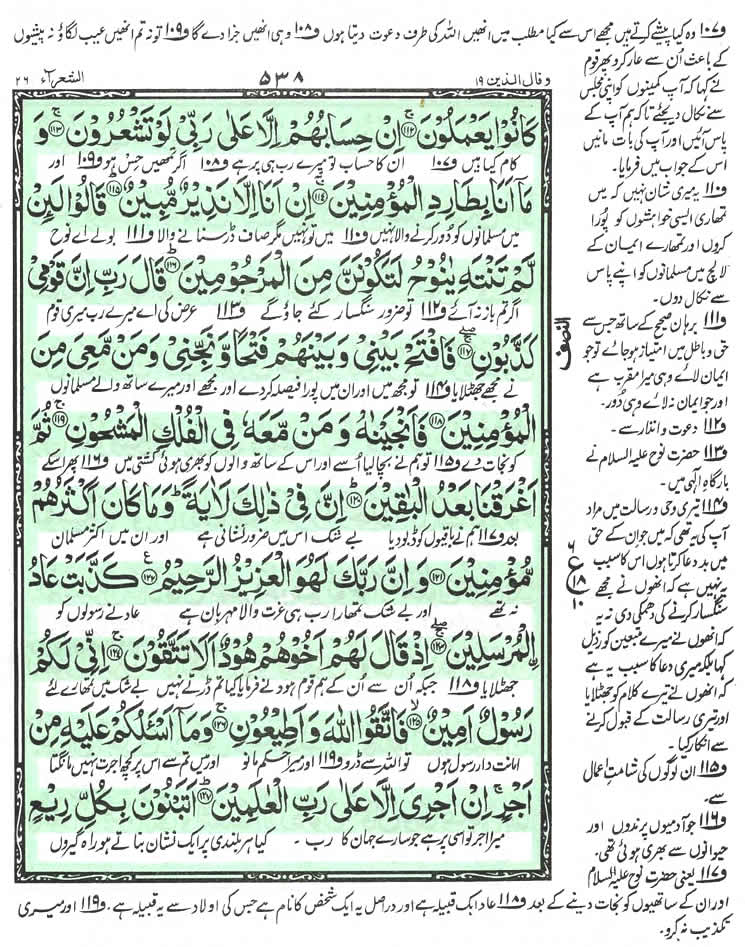 ف۱۰۷ وہ کیا پیشے کرتے ہیں مجھے اس سے کیا مطلب میں انھیں اللہ کی طرف دعوت دیتا ہوں ف۱۰۸ وہی انھیں جزا دے گا ف۱۰۹ تو نہ تم انھیں عیب لگاؤ نہ پیشوں
کے باعث اُن سے عار کرو پھر قوم
نے کہا کہ آپ کمینوں کو اپنی مجلس
سے نکال دیجئے تاکہ ہم آپ کے
پاس آئیں اور آپ کی بات مانیں
اس کے جواب میں فرمایا۔
ف۱۱۰ یہ میری شان نہیں کہ میں
تمھاری ایسی خواہشوں کو پُورا
کروں اور تمھارے ایمان کے
لالچ میں مسلمانوں کو اپنے پاس
سے نکال دوں۔
ف۱۱۱ برہان صحیح کے ساتھ جس سے
حق و باطل میں امتیاز ہو جائے تو جو
ایمان لائے وہی میرا مقرب ہے
اور جو ایمان نہ لائے وہی دُور۔
ف۱۱۲ دعوت و انذار سے۔
ف۱۱۳ حضرت نوح علیہ السلام نے
بارگاہِ الٰہی میں۔
ف۱۱۴ تیری وحی و رسالت میں مراد
آپ کی یہ تھی کہ میں جو ان کے حق
میں بددعا کرتا ہوں اس کا سبب
یہ نہیں ہے کہ انھوں نے مجھے
سنگسار کرنے کی دھمکی دی نہ یہ
کہ انھوں نے میرے متبعین کو رذیل
کہا بلکہ میری دعا کا سبب یہ ہے
کہ انھوں نے تیرے کلام کو جھٹلایا
اور تیری رسالت کے قبول کرنے
سے انکار کیا۔
ف۱۱۵ ان لوگوں کی شامتِ اعمال
سے۔
ف۱۱۶ جو آدمیوں پرندوں اور
حیوانوں سے بھری ہوئی تھی۔
ف۱۱۷ یعنی حضرت نوح علیہ السلام
وقال الذین ۱۹ ۵۳۸ الشعرآء ۲۶
كَانُوْا يَعْمَلُوْنَ ۝۱۱۲ اِنْ حِسَابُهُمْ اِلَّا عَلٰى رَبِّيْ لَوْ تَشْعُرُوْنَ ۝۱۱۳ وَ
کام کیا ہیں ف۱۰۷ ان کا حساب تو میرے رب ہی پر ہے ف۱۰۸ اگر تمھیں حِس ہو ف۱۰۹ اور
مَاۤ اَنَا بِطَارِدِ الْمُؤْمِنِيْنَ ۝۱۱۴ اِنْ اَنَا اِلَّا نَذِيْرٌ مُّبِيْنٌ ۝۱۱۵ قَالُوْا لَئِنْ
میں مسلمانوں کو دُور کرنے والا نہیں ف۱۱۰ میں تو نہیں مگر صاف ڈر سنانے والا ف۱۱۱ بولے اے نوح
لَّمْ تَنْتَهِ يٰنُوْحُ لَتَكُوْنَنَّ مِنَ الْمَرْجُوْمِيْنَ ۝۱۱۶ قَالَ رَبِّ اِنَّ قَوْمِيْ
اگر تم باز نہ آئے ف۱۱۲ تو ضرور سنگسار کئے جاؤ گے ف۱۱۳ عرض کی اے میرے رب میری قوم
كَذَّبُوْنِ ۝۱۱۷ فَافْتَحْ بَيْنِيْ وَبَيْنَهُمْ فَتْحًا وَّنَجِّنِيْ وَمَنْ مَّعِيَ مِنَ
نے مجھے جھٹلایا ف۱۱۴ تو مجھ میں اور ان میں پورا فیصلہ کر دے اور مجھے اور میرے ساتھ والے مسلمانوں
الْمُؤْمِنِيْنَ ۝۱۱۸ فَاَنْجَيْنٰهُ وَمَنْ مَّعَهٗ فِي الْفُلْكِ الْمَشْحُوْنِ ۝۱۱۹ ثُمَّ
کو نجات دے ف۱۱۵ تو ہم نے بچالیا اُسے اور اس کے ساتھ والوں کو بھری ہوئی کشتی میں ف۱۱۶ پھر اسکے
اَغْرَقْنَا بَعْدُ الْبٰقِيْنَ ۝۱۲۰ اِنَّ فِيْ ذٰلِكَ لَاٰيَةً ؕ وَمَا كَانَ اَكْثَرُهُمْ
بعد ف۱۱۷ ہم نے باقیوں کو ڈبو دیا بے شک اس میں ضرور نشانی ہے اور ان میں اکثر مسلمان
مُّؤْمِنِيْنَ ۝۱۲۱ وَاِنَّ رَبَّكَ لَهُوَ الْعَزِيْزُ الرَّحِيْمُ ۝۱۲۲ كَذَّبَتْ عَادُ
نہ تھے اور بے شک تمھارا رب ہی عزت والا مہربان ہے عاد نے رسولوں کو
اِۨلْمُرْسَلِيْنَ ۝۱۲۳ اِذْ قَالَ لَهُمْ اَخُوْهُمْ هُوْدٌ اَلَا تَتَّقُوْنَ ۝۱۲۴ اِنِّيْ لَكُمْ
جھٹلایا ف۱۱۸ جبکہ اُن سے اُن کے ہم قوم ہود نے فرمایا کیا تم ڈرتے نہیں بے شک میں تمھارے لئے
رَسُوْلٌ اَمِيْنٌ ۝۱۲۵ فَاتَّقُوا اللّٰهَ وَاَطِيْعُوْنِ ۝۱۲۶ وَمَاۤ اَسْـَٔلُكُمْ عَلَيْهِ مِنْ
امانت دار رسول ہوں تو اللہ سے ڈرو ف۱۱۹ اور میرا حکم مانو اور میں تم سے اس پر کچھ اجرت نہیں مانگتا
اَجْرٍ ۚ اِنْ اَجْرِيَ اِلَّا عَلٰى رَبِّ الْعٰلَمِيْنَ ۝۱۲۷ اَتَبْنُوْنَ بِكُلِّ رِيْعٍ
میرا اجر تو اسی پر ہے جو سارے جہان کا رب ۔ کیا ہر بلندی پر ایک نشان بناتے ہو راہ گیروں
النصف
۶
ع
۱۸
۱۰
اور ان کے ساتھیوں کو نجات دینے کے بعد ف۱۱۸ عاد ایک قبیلہ ہے اور دراصل یہ ایک شخص کا نام ہے جس کی اولاد سے یہ قبیلہ ہے۔ ف۱۱۹ اور میری
تکذیب نہ کرو۔